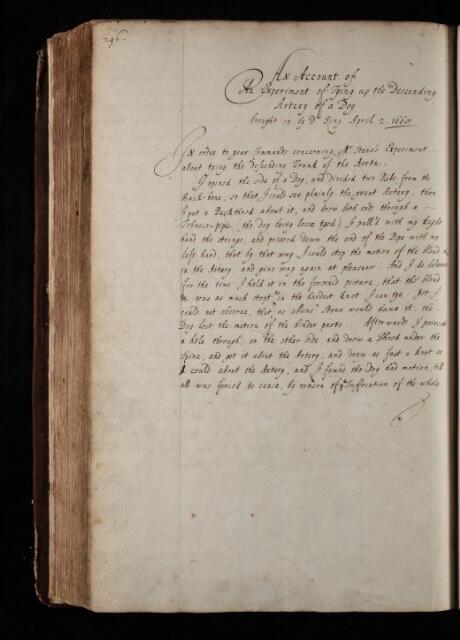 296.
An Account of
An Experiment of Tying up the Descending
Artery of a Dog
brought in by Dr. King April 2. 1668
In order to your Commands concerning Mr. Steno's Experiment
about tying the descending Trunk of the Aorta.
I opened the side of a Dog, and divided two Ribs from the
Back-bone, so that I could see plainly the great Artery. then
I put a Packthred about it, and drew both ends through a
Tobacco-pipe, (the dog being loose tyed) I pull'd with my Right
hand the strings, and pressed down the end of the Pipe with my
left hand, that by that way I could stop the motion of the blood
in the Artery, and give way again at pleasure. And I do believe
for the time I held it in the foresaid posture, that the blood
was as much stopt in the hardest knot I can tye. Yet I
could not observe, that, as Mons. Steno would have it, the
Dog lost the motion of the hinder parts. Afterwards I peirced
a hole through, on the other side, and drew a Thred under the
Spine, and put it about the Artery, and drew as fast a knot as
I could about the Artery, and I found the Dog had motion, till
all was forced to cease, by reason of ye Suffocation of the whole